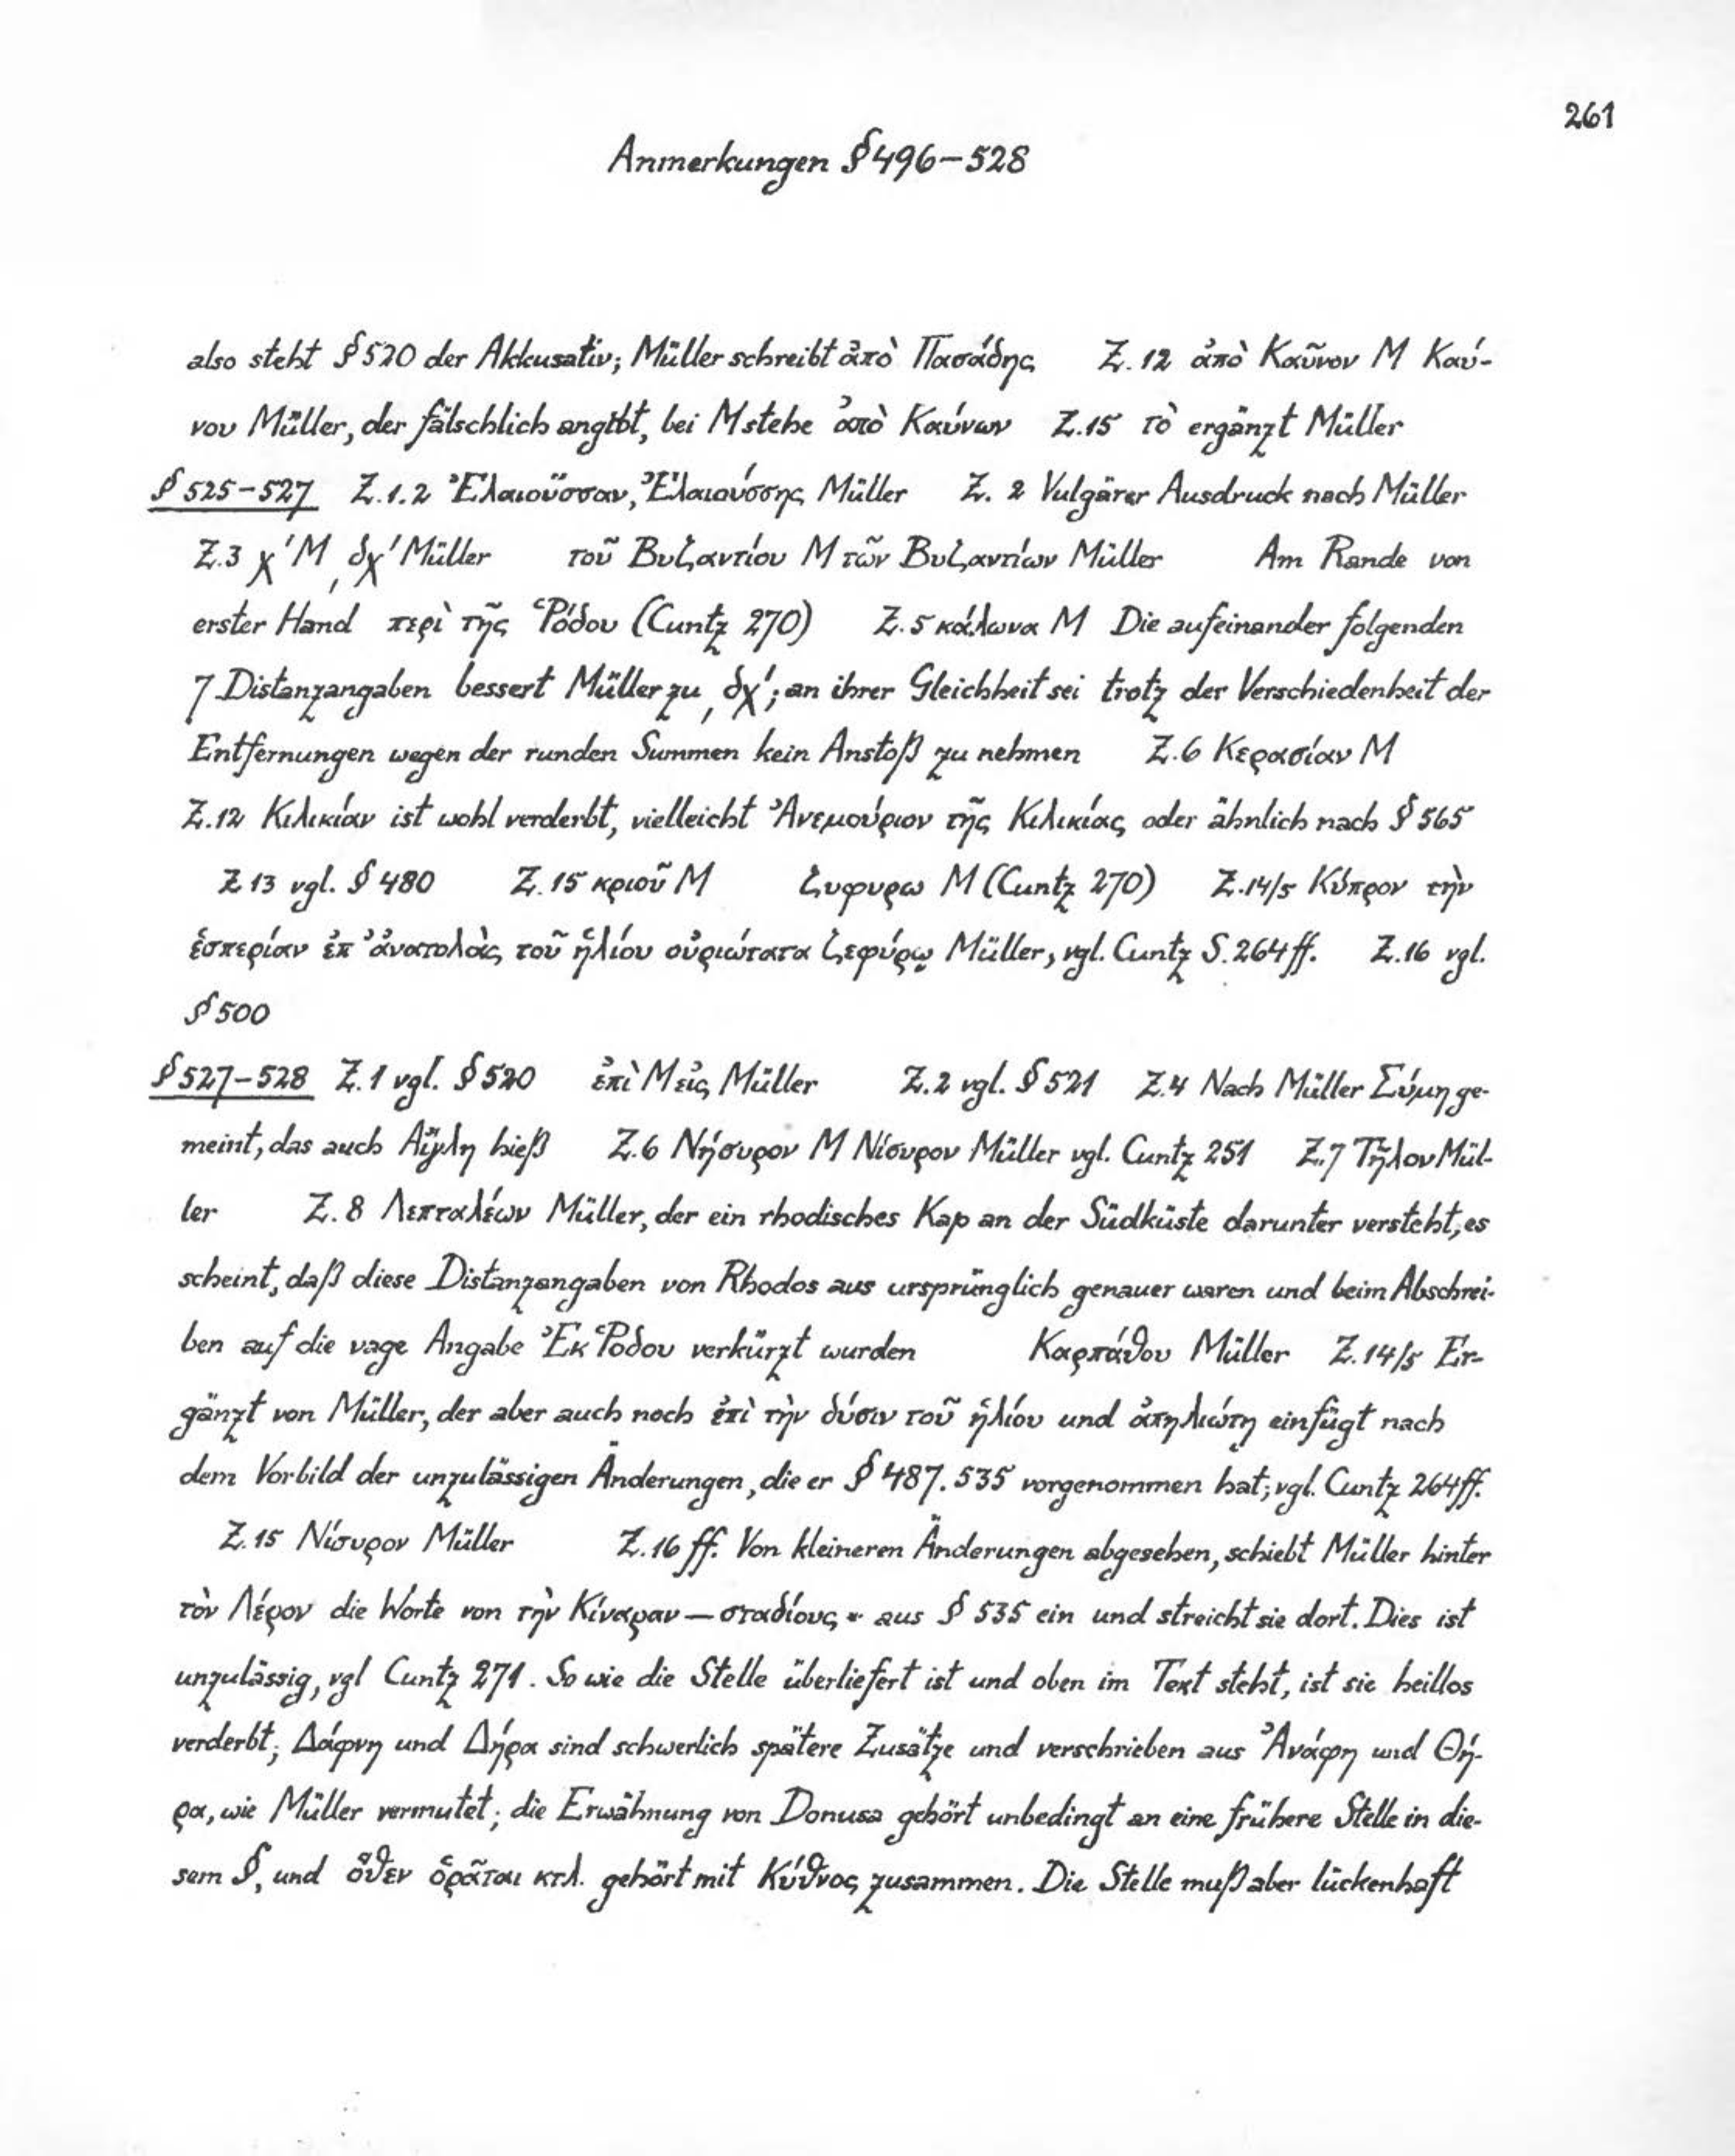 261
Anmerkungen §496–528
also steht §520 der Akkusativ; Müller schreibt ἀπὸ Πασάδης Z.12 ἀπὸ Καῦνον M Καύ-
νου Müller, der fälschlich angibt, bei M stehe ἀπὸ Καύνων Z.15 τὸ ergänzt Müller
§525–527 Z.1.2 Ἐλαιοῦσσαν, Ἐλαιούσσης Müller Z. 2 Vulgärer Ausdruck nach Müller
Z.3 χ´ M ͵δχ´ Müller τοῦ Βυζαντίου M τῶν Βυζαντίων Müller Am Rande von
erster Hand περὶ τῆς Ῥόδου (Cuntz 270) Z.5 κάλωνα M Die aufeinander folgenden
7 Distanzangaben bessert Müller zu ͵δχ´; an ihrer Gleichheit sei trotz der Verschiedenheit der
Entfernungen wegen der runden Summen kein Anstoß zu nehmen Z.6 Κερασίαν M
Z.12 Κιλικίαν ist wohl verderbt, vielleicht Ἀνεμούριον τῆς Κιλικίας oder ähnlich nach §565
Z 13 vgl. §480 Z.15 κριοῦ M ζυφυρω M (Cuntz 270) Z.14/5 Κύπρον τὴν
ἑσπερίαν ἐπ' ἀνατολὰς τοῦ ἡλίου οὐριώτατα ζεφύρῳ Müller, vgl. Cuntz S. 264 ff. Z.16 vgl.
§500
§527–528 Z.1 vgl. §520 ἐπὶ M εἰς Müller Z.2 vgl. §521 Z.4 Nach Müller Σύμη ge-
meint, das auch Αἴγλη hieß Z.6 Νήσυρον M Νίσυρον Müller vgl. Cuntz 251 Z.7 Τῆλον Mül-
ler Z.8 Λεπταλέων Müller, der ein rhodisches Kap an der Südküste darunter versteht, es
scheint, daß diese Distanzangaben von Rhodos aus ursprünglich genauer waren und beim Abschrei-
ben auf die vage Angabe Ἐκ Ῥόδου verkürzt wurden Καρπάθου Müller Z.14/5 Er-
gänzt von Müller, der aber auch noch ἐπὶ τὴν δύσιν τοῦ ἡλίου und ἀπηλιώτῃ einfügt nach
dem Vorbild der unzulässigen Änderungen, die er §487.535 vorgenommen hat; vgl. Cuntz 264 ff.
Z.15 Νίσυρον Müller Z.16 ff. Von kleineren Änderungen abgesehen, schiebt Müller hinter
τὸν Λέρον die Worte von τὴν Κίναραν – σταδίους aus §535 ein und streicht sie dort. Dies ist
unzulässig, vgl Cuntz 271. So wie die Stelle überliefert ist und oben im Text steht, ist sie heillos
verderbt; Δάφνη und Δήρα sind schwerlich spätere Zusätze und verschrieben aus Ἀνάφη und Θή-
ρα, wie Müller vermutet; die Erwähnung von Donusa gehört unbedingt an eine frühere Stelle in die-
sem §, und ὅθεν ὁρᾶται κτλ. gehört mit Κύθνος zusammen. Die Stelle muß aber lückenhaft